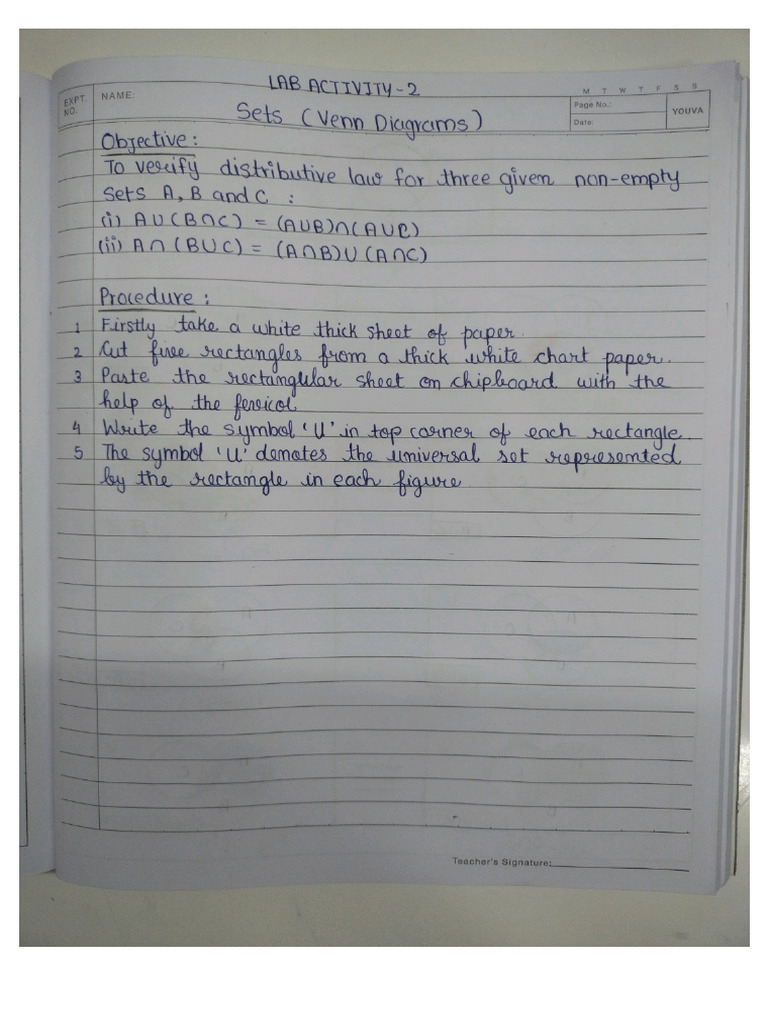 LAB ACTIVITY-2
EXPT. NO. NAME: M T W T F S S
Page No.: YOUVA
Date:
Sets (Venn Diagrams)
Objective:
To verify distributive law for three given non-empty
sets A, B and C :
(i) A∪(B∩C) = (A∪B)∩(A∪C)
(ii) A∩(B∪C) = (A∩B)∪(A∩C)
Procedure :
1 Firstly take a white thick sheet of paper.
2 Cut five rectangles from a thick white chart paper.
3 Paste the rectangular sheet on chipboard with the
help of the fevicol
4 Write the symbol 'U' in top corner of each rectangle.
5 The symbol 'U' denotes the universal set represented
by the rectangle in each figure.
Teacher's Signature: